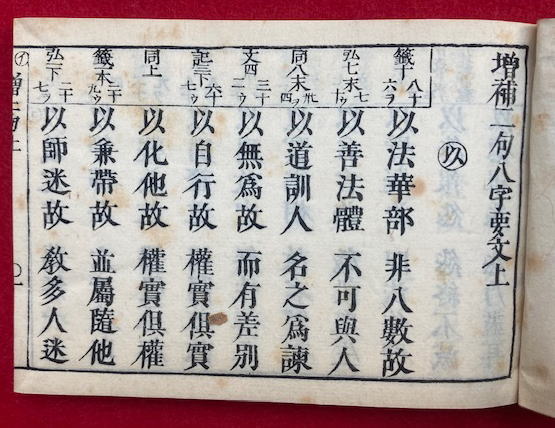 増補二句八字要文上
㋑以
籤十 八十六ヲ
以法華部 非八數故
弘七末 七十ウ
以善法體 不可與人
同八末 卅四ヲ
以道訓人 名之為諫
文四 三十二ウ
以無為故 而有差別
記三下 六十七ウ
以自行故 權實俱實
同上
以化他故 權實俱權
籤六本 二十九ウ
以兼帶故 並屬隨他
弘一下 二十七ヲ
以師迷故 教多人迷